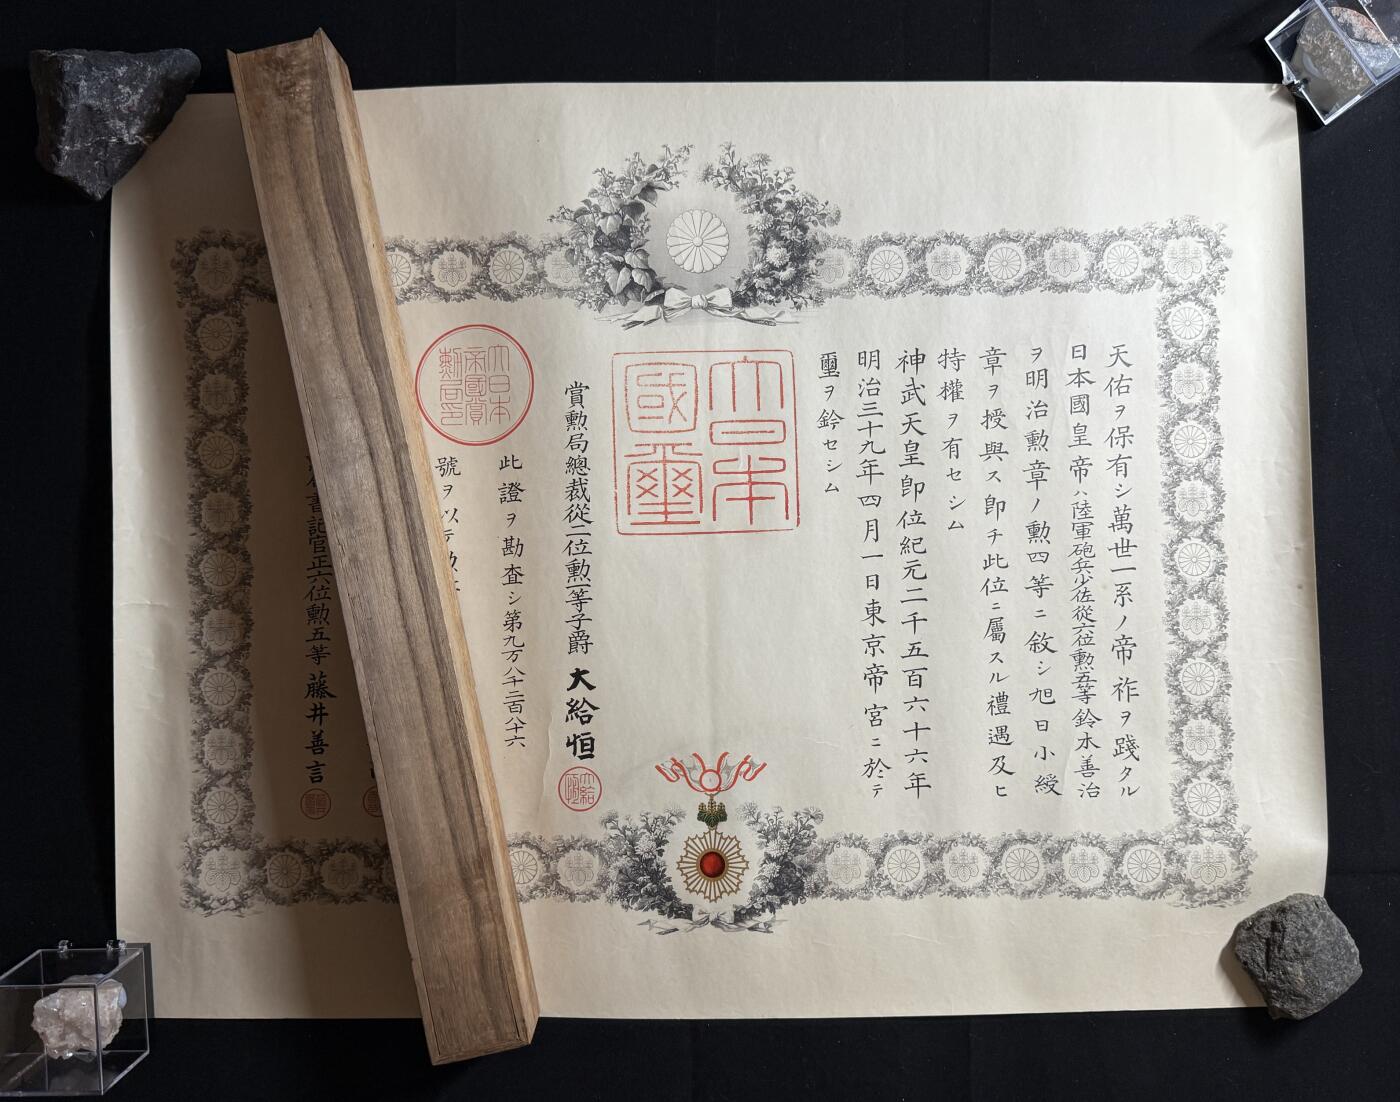 天佑ヲ保有シ萬世一系ノ帝祚ヲ踐タル
日本國皇帝ハ陸軍砲兵少佐從六位勲五等鈴木善治
ヲ明治勲章ノ勲四等ニ敘シ旭日小綬
章ヲ授與ス即チ此位ニ屬スル禮遇及ヒ
特權ヲ有セシム
神武天皇即位紀元二千五百六十六年
明治三十九年四月一日東京帝宮ニ於テ
璽ヲ鈐セシム
大日本
國璽
賞勲局總裁從二位勲一等子爵大給恒
大給
恒
此證ヲ勘査シ第九万八千二百八十六
號ヲ以テ
大日本
帝國賞
勲局印
書記官正六位勲五等藤井善言